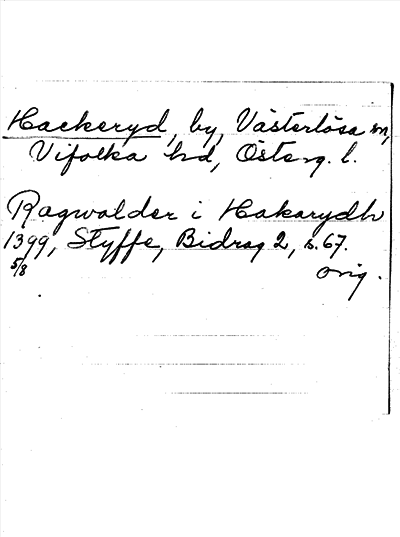 Hackeryd, by, Västerlösa sn,
Vifolka hd, Österg. l.
Ragwalder i Hakarydh
1399, Styffe, Bidrag 2, s. 67.
5/8 orig.